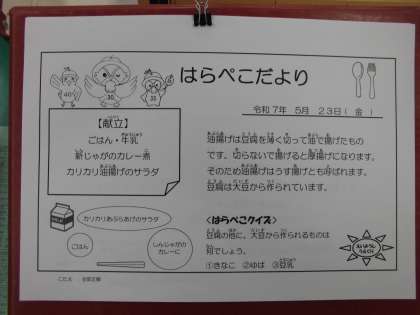 はらぺこだより
令和7年 5月 23日(金)
【献立】
ごはん・牛乳
新じゃがのカレー煮
カリカリ油揚げのサラダ
油揚げは豆腐を薄く切って油で揚げたもの
です。切らないで揚げると厚揚げになります。
そのため油揚げはうす揚げとも呼ばれます。
豆腐は大豆から作られています。
カリカリあぶらあげのサラダ
ごはん
しんじゃがの
カレーに
<はらぺこクイズ>
豆腐の他に、大豆から作られるものは
何でしょう。
①きなこ ②ゆば ③豆乳
こたえ：全部正解